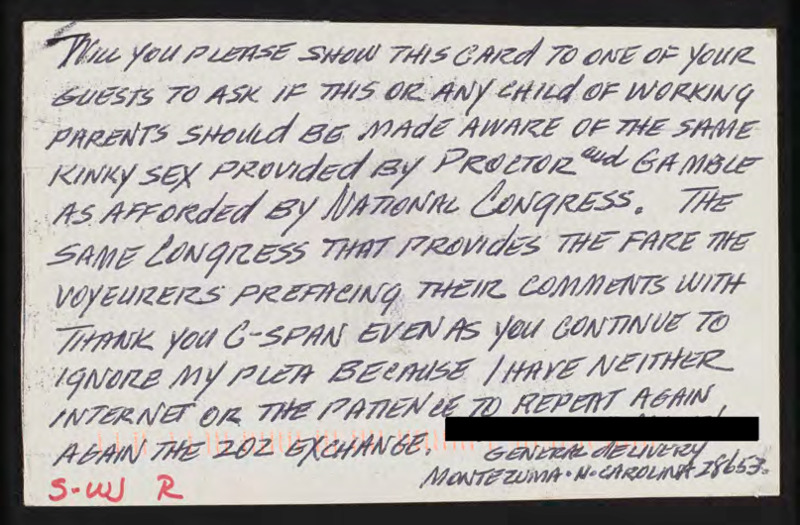 WILL YOU PLEASE SHOW THIS CARD TO ONE OF YOUR
GUESTS TO ASK IF THIS OR ANY CHILD OF WORKING
PARENTS SHOULD BE MADE AWARE OF THE SAME
KINKY SEX PROVIDED BY PROCTOR and GAMBLE
AS AFFORDED BY NATIONAL CONGRESS. THE
SAME CONGRESS THAT PROVIDES THE FARE THE
VOYEURERS PREFACING THEIR COMMENTS WITH
THANK YOU C-SPAN EVEN AS YOU CONTINUE TO
IGNORE MY PLEA BECAUSE I HAVE NEITHER
INTERNET OR THE PATIENCE TO REPEAT AGAIN
AGAIN THE 202 EXCHANGE.
GENERAL DELIVERY
MONTEZUMA · N · CAROLINA 28653.
S-W R